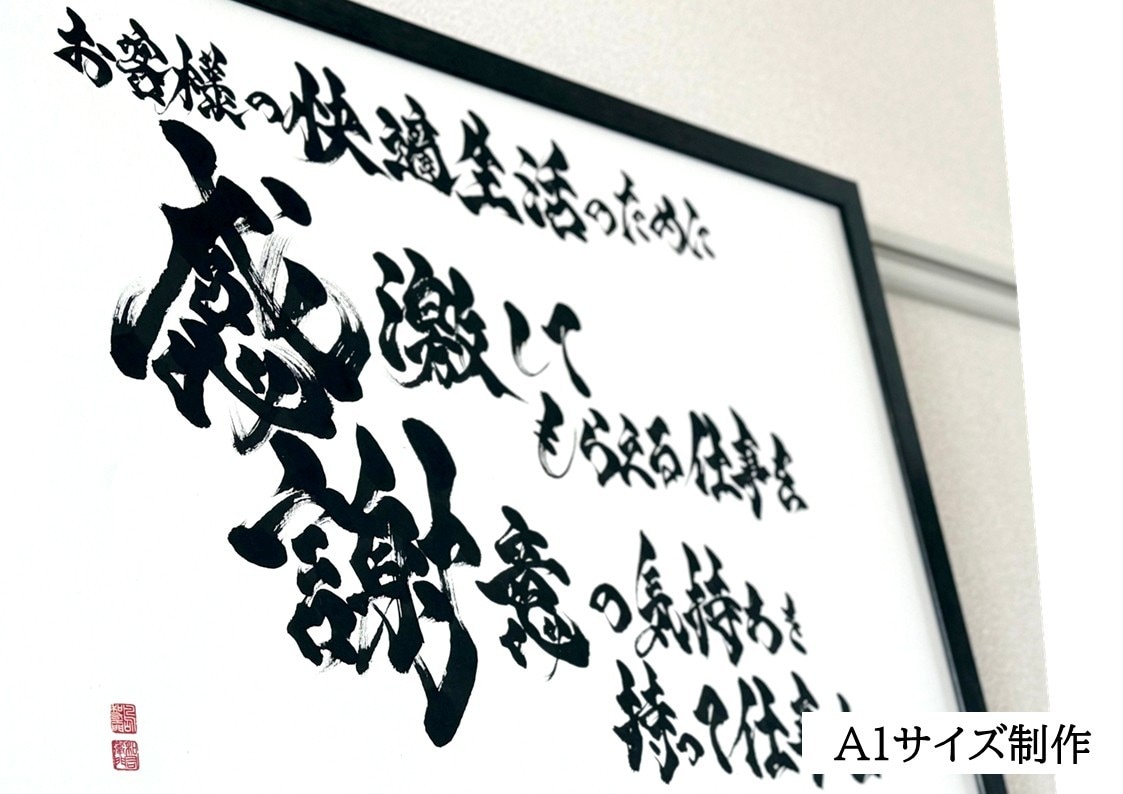 お客様の快適生活のために
感激して
もらえる仕事を
謝意の気持ちを
持って仕事
A1サイズ制作